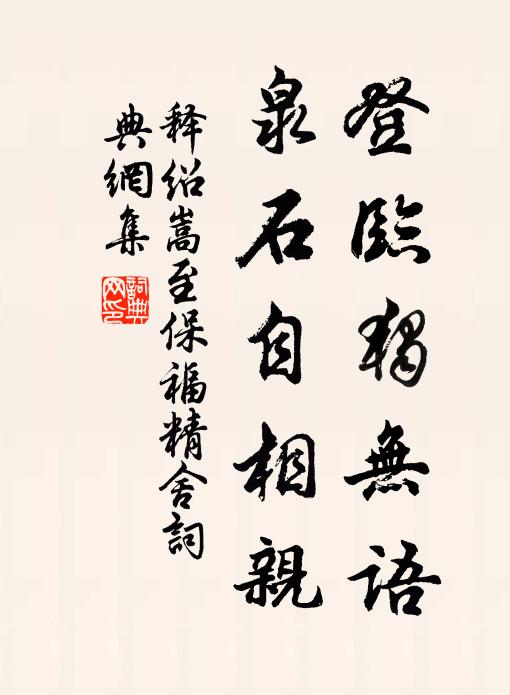 登臨獨無語
泉石自相親
释绍嵩至保福精舍詞
典網集
詞典
网印